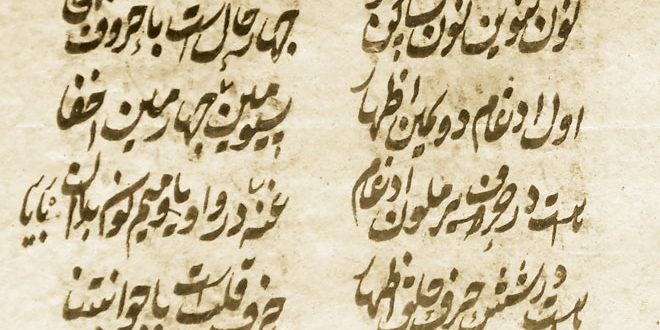 نون تنوین نون ساکن چهار حال است با حروف
اول ادغام دویمین اظهار سیومین چهارمین اخفا
هست در حروف یرملون ادغام غنه در واو یا و میم
هست در شش حرف حلق اظهار حرف قلب است با چو انبتنا